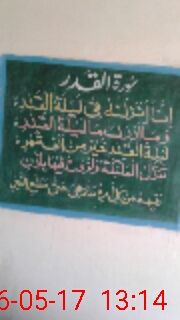 سورة القدر
إنا أنزلناه في ليلة القدر
وما أدراك ما ليلة القدر
ليلة القدر خير من ألف شهر
تنزل الملائكة والروح فيها بإذن
ربهم من كل أمر سلام هي حتى مطلع الفجر
6-05-17 13:14